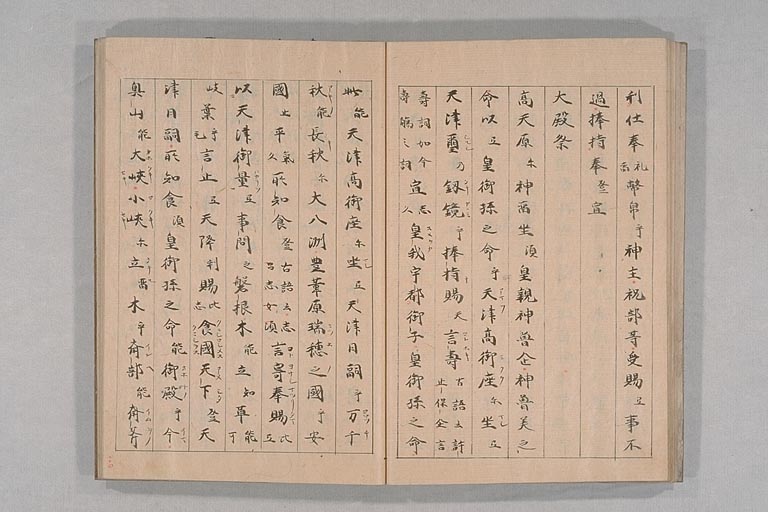 利仕奉礼留幣帛乎神主祝部等受賜弖事不
過捧持奉登宣
大殿祭
高天原尓神留坐須皇親神魯企神魯美之
命以弖皇御孫之命乎天津高御座尓坐弖
天津璽乃釼鏡乎捧持賜天言壽古語云許止保企言
壽詞如今壽觴之詞宣志久皇我宇都御子皇御孫之命
此能天津高御座尓坐弖天津日嗣乎万千
秋能長秋尓大八洲豊葦原瑞穗之國乎安
國止平氣久所知食登古語云志呂志女須言寄奉賜比弖
以天津御量弖事問之磐根木能立知草能可
岐葉乎毛言止弖天降利賜比志食國天下登天
津日嗣所知食須皇御孫之命能御殿乎今
奥山能大峽小峽尓立留木乎齋部能齋斧